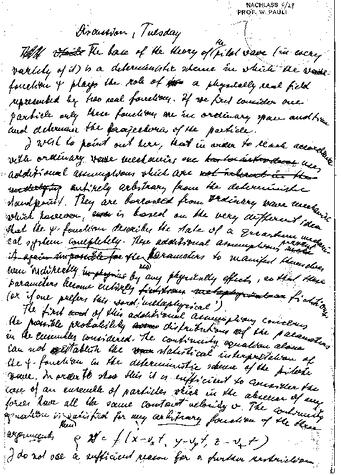 NACHLASS 6/27
PROF. W. PAULI
Discussion, Tuesday
The base of the theory of the pilot wave (in every
variety of it) is a deterministic scheme in which the
function ψ plays the role of a physically real field
represented by two real functions. If we first consider one
particle only these functions are in ordinary space and time
and determine the trajectories of the particle.
I wish to point out here, that in order to reach accordance
with ordinary wave mechanics one uses
additional assumptions which are
entirely arbitrary from the deterministic
standpoint. They are borrowed from ordinary wave mechanics
which however, is based on the very different idea
that the ψ-function describes the state of a
system completely. These additional assumptions
the parameters to manifest themselves
indirectly by any physically effects, so that these
parameters become entirely fictitious
(or if one prefers this word, "metaphysical")
The first of this additional assumptions concerns
the possible probability distribution of the parameters
in the ensembles considered. The continuity equation alone
can not establish the statistical interpretation of
the ψ-function in the deterministic scheme of the pilot
wave. In order to show this it is sufficient to consider the
case of an ensemble of particles which in the absence of any
forces have all the same constant velocity v. The continuity
equation is satisfied for any arbitrary function of the three
arguments
= f(x-vₓt, y-v_yt, z-v_zt)
I do not see a sufficient reason for a further restriction.